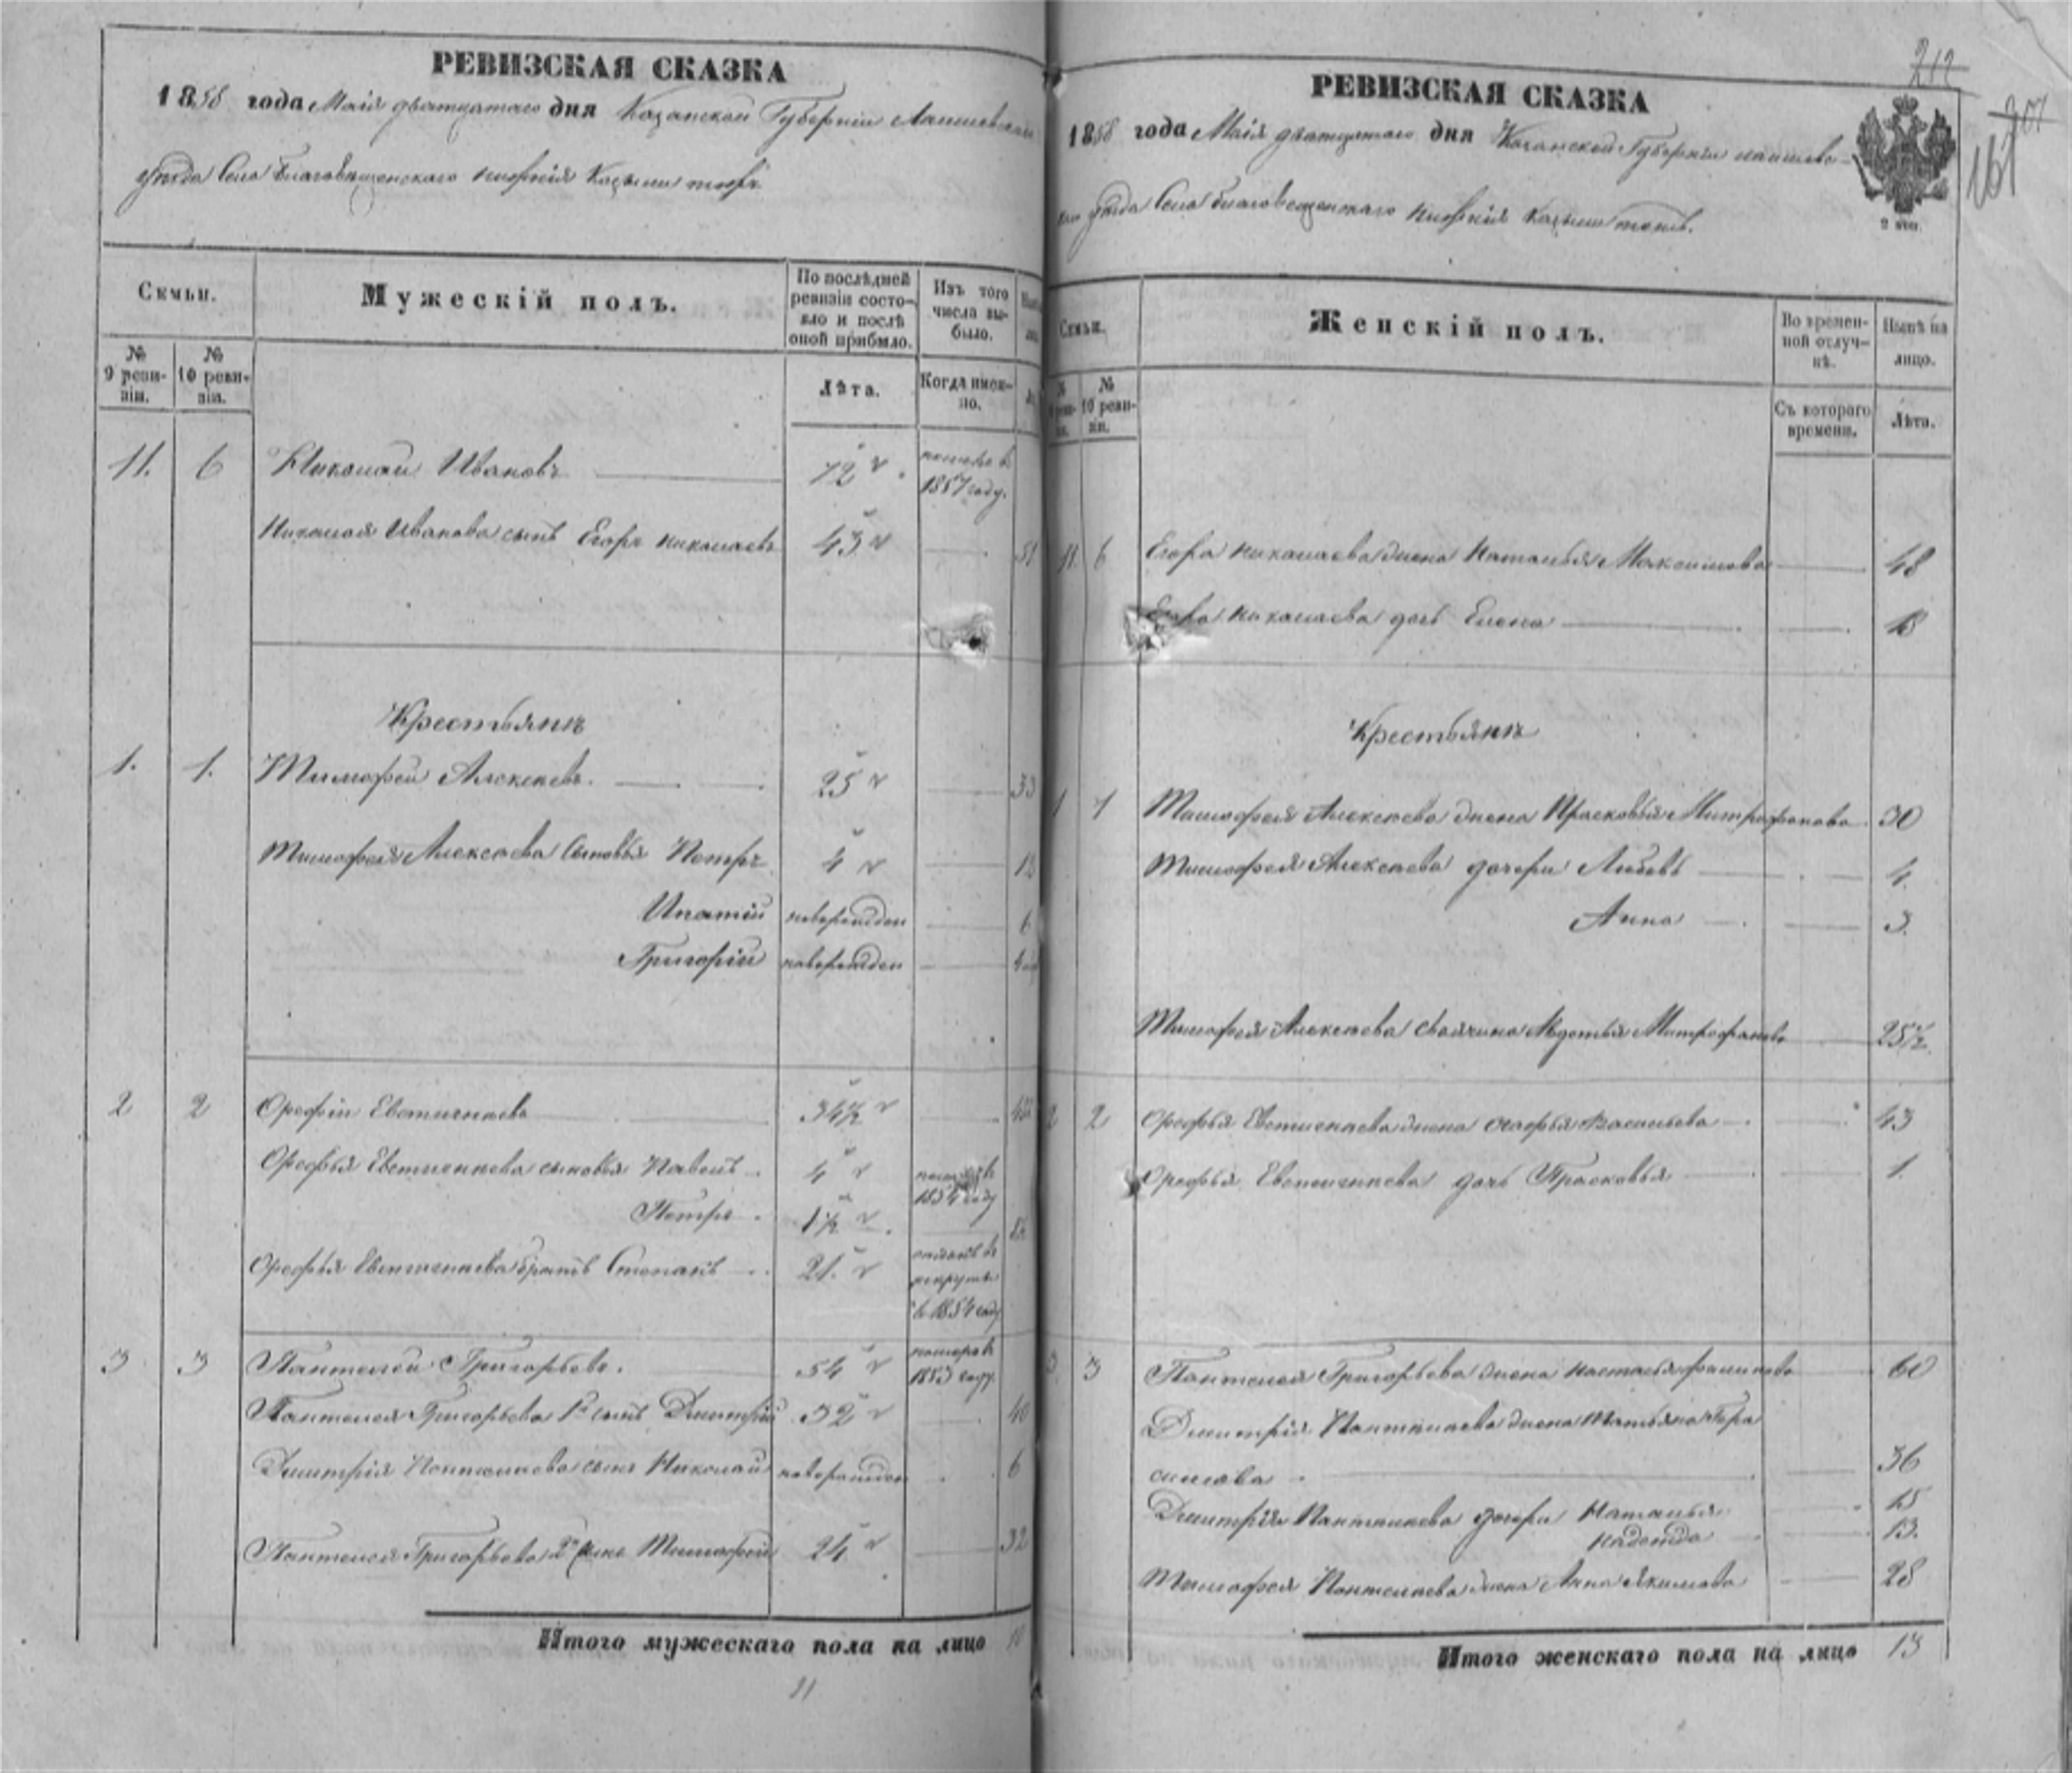 РЕВИЗСКАЯ СКАЗКА
1858 года Маія дватцатаго дня Казанской Губерніи Лаишевскаго
уѣзда Села Благовѣщенскаго нижнія
Семьи.
Мужескій полъ.
По послѣдней ревизіи состояло и послѣ оной прибыло.
Изъ того числа выбыло.
№ 9 ревизіи.
№ 10 ревизіи.
Лѣта.
Когда именно.
11. 6 Николай Ивановъ 72 померъ въ 1857 году.
Николая Иванова сынъ Егоръ Николаевъ 43 51
Крестьянъ
1. 1. Тимофей Алексеевъ. 25 33
Тимофея Алексеева сыновья Петръ 4 12
Ипатій новорожден 6
Григорій новорожден 4
2 2 Орефій Евстигнеевъ 34½
Орефья Евстигнеева сыновья Павелъ 4 1854 году
Петръ 1½
Орефья Евстигнеева братъ Степанъ 21. отданъ въ рекруты въ 1854 году
3 3 Пантелей Григорьевъ. 54 померъ в 1853 году
Пантелея Григорьева 1й сынъ Дмитрій 32 40
Дмитрія Пантелеева сынъ Николай новорожден 6
Пантелея Григорьева 2й сынъ Тимофей 24 32
Итого мужескаго пола на лицо 10
11
212
РЕВИЗСКАЯ СКАЗКА
1858 года Маія дватцатаго дня Казанской Губерніи Лаишевс-
каго уѣзда Села Благовещенскаго нижнія
2 коп.
Семьи.
Женскій полъ.
Во временной отлучкѣ.
Нынѣ на лицо.
№ 10 ревизіи.
Съ котораго времени.
Лѣта.
11 6 Егора Николаева жена Наталья Максимова 48
Егора Николаева дочь Елена 18
Крестьянъ
1 1 Тимофея Алексеева жена Прасковья Митрофанова 30
Тимофея Алексеева дочери Любовь 4.
Анна 3.
Тимофея Алексеева своячина Авдотья Митрофанова 25½
2 2 Орефья Евстигнеева жена Агафья Васильева 43
Орефья Евстигнеева дочь Прасковья 1.
3 3 Пантелея Григорьева жена Настасья 60
Дмитрія Пантелеева жена Татьяна Гера
симова 36
Дмитрія Пантелеева дочери Наталья 15
Надежда 13.
Тимофея Пантелеева жена Анна Якимова 28
Итого женскаго пола на лицо 13